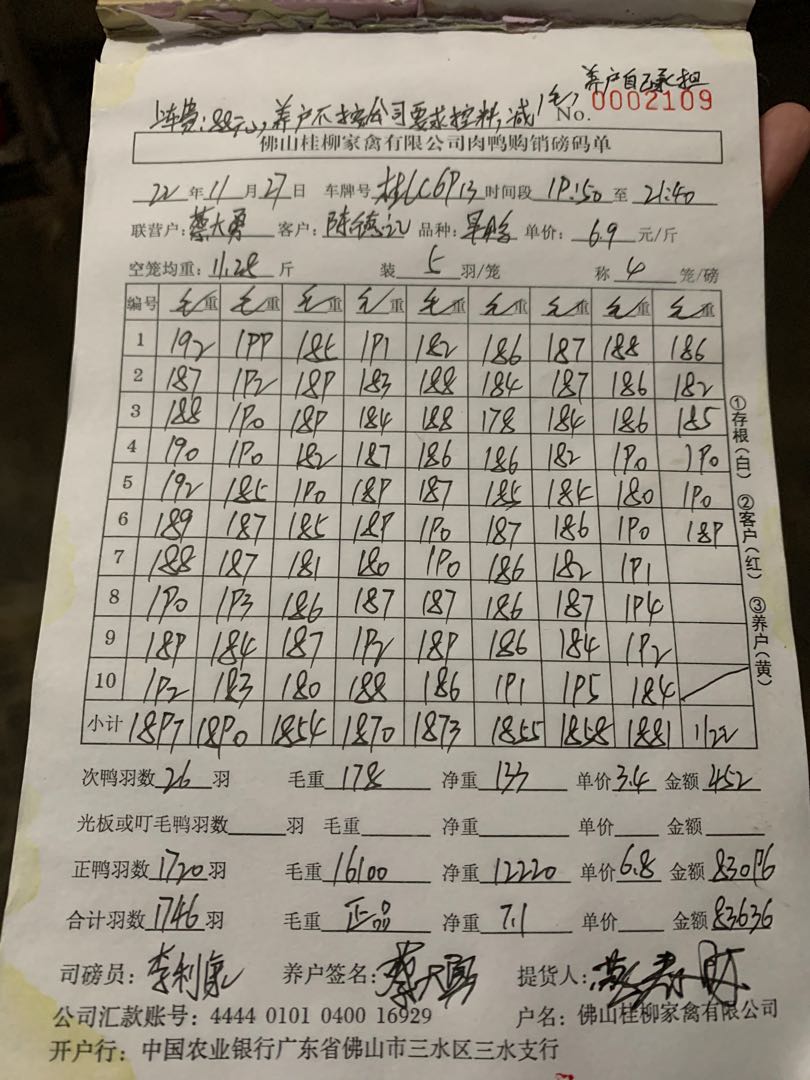 养户自己承担
上车费:88元,养户不按公司要求控料,减1毛, No. 0002109
佛山桂柳家禽有限公司肉鸭购销磅码单
22年11月27日 车牌号 桂LC6913 时间段 19:50 至 21:40
联营户:蔡大勇 客户:陈德记 品种: 单价:6.9元/斤
空笼均重:11.28斤 装5羽/笼 称4笼/磅
编号 毛重 毛重 毛重 毛重 毛重 毛重 毛重 毛重 毛重
1 192 199 185 191 182 186 187 188 186
2 187 192 189 183 188 184 187 186 182
3 188 190 189 184 188 178 184 186 185
4 190 190 182 187 186 186 182 190 190
5 192 185 190 189 187 185 184 180 190
6 189 187 185 189 190 187 186 190 189
7 188 187 181 180 190 186 182 191
8 190 193 186 187 187 186 187 194
9 189 184 187 192 189 186 184 192
10 192 183 180 188 186 191 195 184
小计 1897 1890 1854 1870 1873 1855 1858 1881 1122
次鸭羽数26羽 毛重178 净重133 单价3.4 金额452
光板或叮毛鸭羽数 羽 毛重 净重 单价 金额
正鸭羽数1720羽 毛重16100 净重12220 单价6.8 金额83096
合计羽数1746羽 毛重正品 净重7.1 单价 金额83636
司磅员:李利康 养户签名:蔡大勇 提货人:
公司汇款账号:4444 0101 0400 16929 户名:佛山桂柳家禽有限公司
开户行:中国农业银行广东省佛山市三水区三水支行
①存根(白) ②客户(红) ③养户(黄)